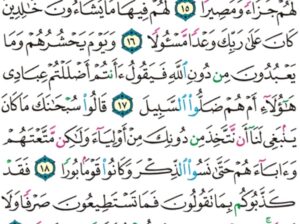 لَهُمْ جَزَآءً وَمَصِيرًا ١٥ لَّهُمْ فِيهَا مَا يَشَآءُونَ خَٰلِدِينَ
كَانَ عَلَىٰ رَبِّكَ وَعْدًا مَّسْـُٔولًا ١٦ وَيَوْمَ يَحْشُرُهُمْ وَمَا
يَعْبُدُونَ مِن دُونِ ٱللَّهِ فَيَقُولُ ءَأَنتُمْ أَضْلَلْتُمْ عِبَادِى
هَٰٓؤُلَآءِ أَمْ هُمْ ضَلُّوا۟ ٱلسَّبِيلَ ١٧ قَالُوا۟ سُبْحَٰنَكَ مَا كَانَ
يَنۢبَغِى لَنَآ أَن نَّتَّخِذَ مِن دُونِكَ مِنْ أَوْلِيَآءَ وَلَٰكِن مَّتَّعْتَهُمْ
وَءَابَآءَهُمْ حَتَّىٰ نَسُوا۟ ٱلذِّكْرَ وَكَانُوا۟ قَوْمًۢا بُورًا ١٨ فَقَدْ
كَذَّبُوكُم بِمَا تَقُولُونَ فَمَا تَسْتَطِيعُونَ صَرْفًا وَلَا